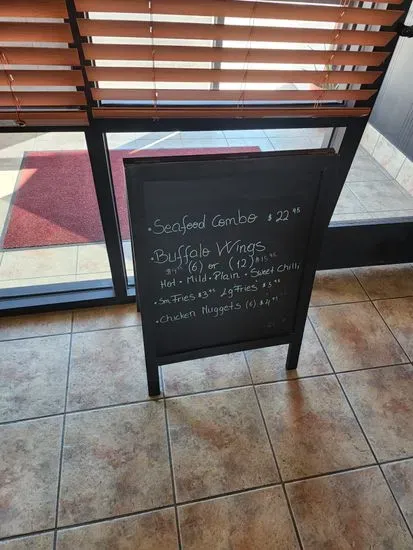 • Seafood Combo $22.95
• Buffalo Wings
(6) or (12) $15.95
Hot • Mild • Plain • Sweet Chili
• Sm Fries $3.95 Lg Fries $5.95
• Chicken Nuggets (6) $4.95